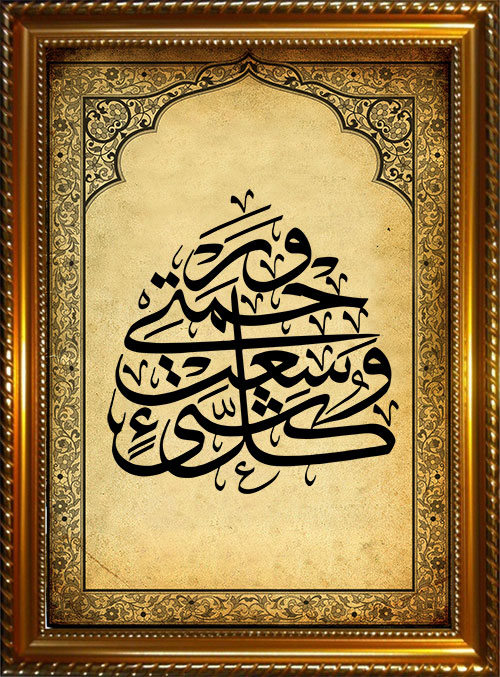 وَرَ
حْمَتِي
وَسِعَتْ
كُلَّ شَيْءٍ